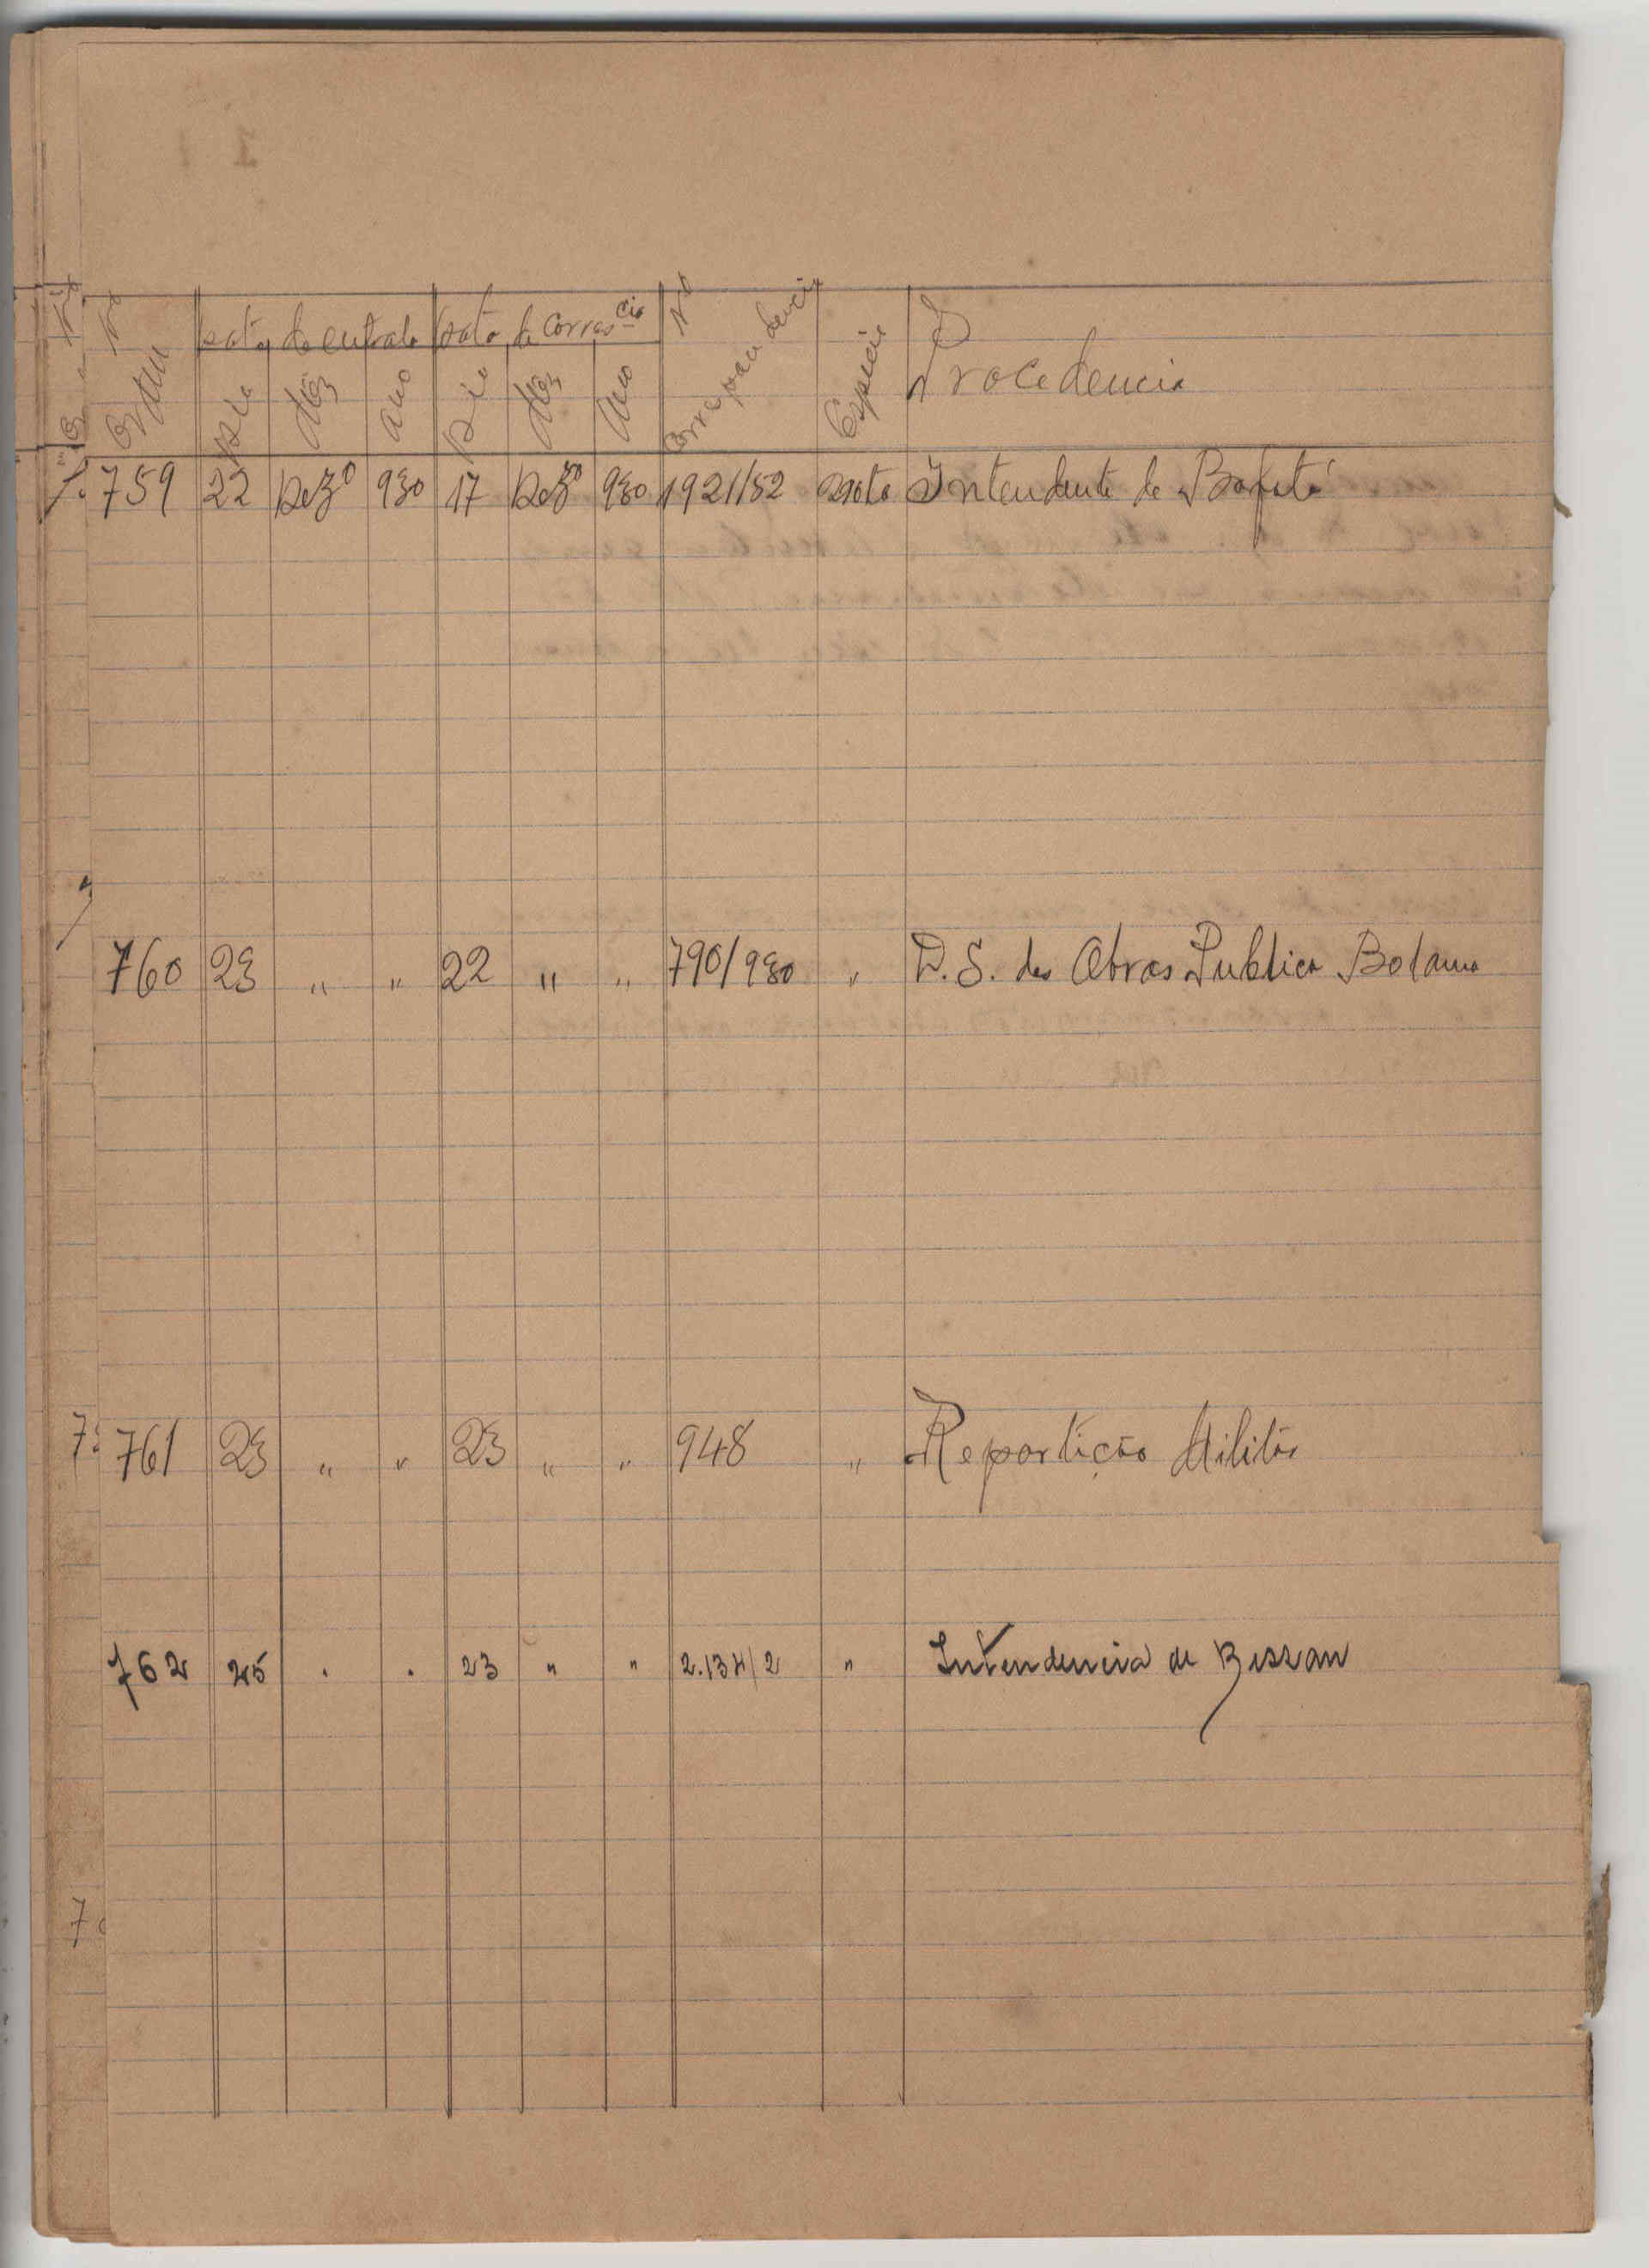 Nº Ordem Data de entrada Data de Corres.cia Nº Correspondencia Especie Procedencia
Dia Mês Ano Dia Mês Ano
759 22 Dezº 930 17 Dezº 930 1921/52 Nota Intendente de Bafatá
760 23 " " 22 " " 790/930 " D. S. das Obras Publica Bolama
761 23 " " 23 " " 948 " Repartição Militar
762 25 . . 23 " " 2.134/2 " Intendencia de Bissau